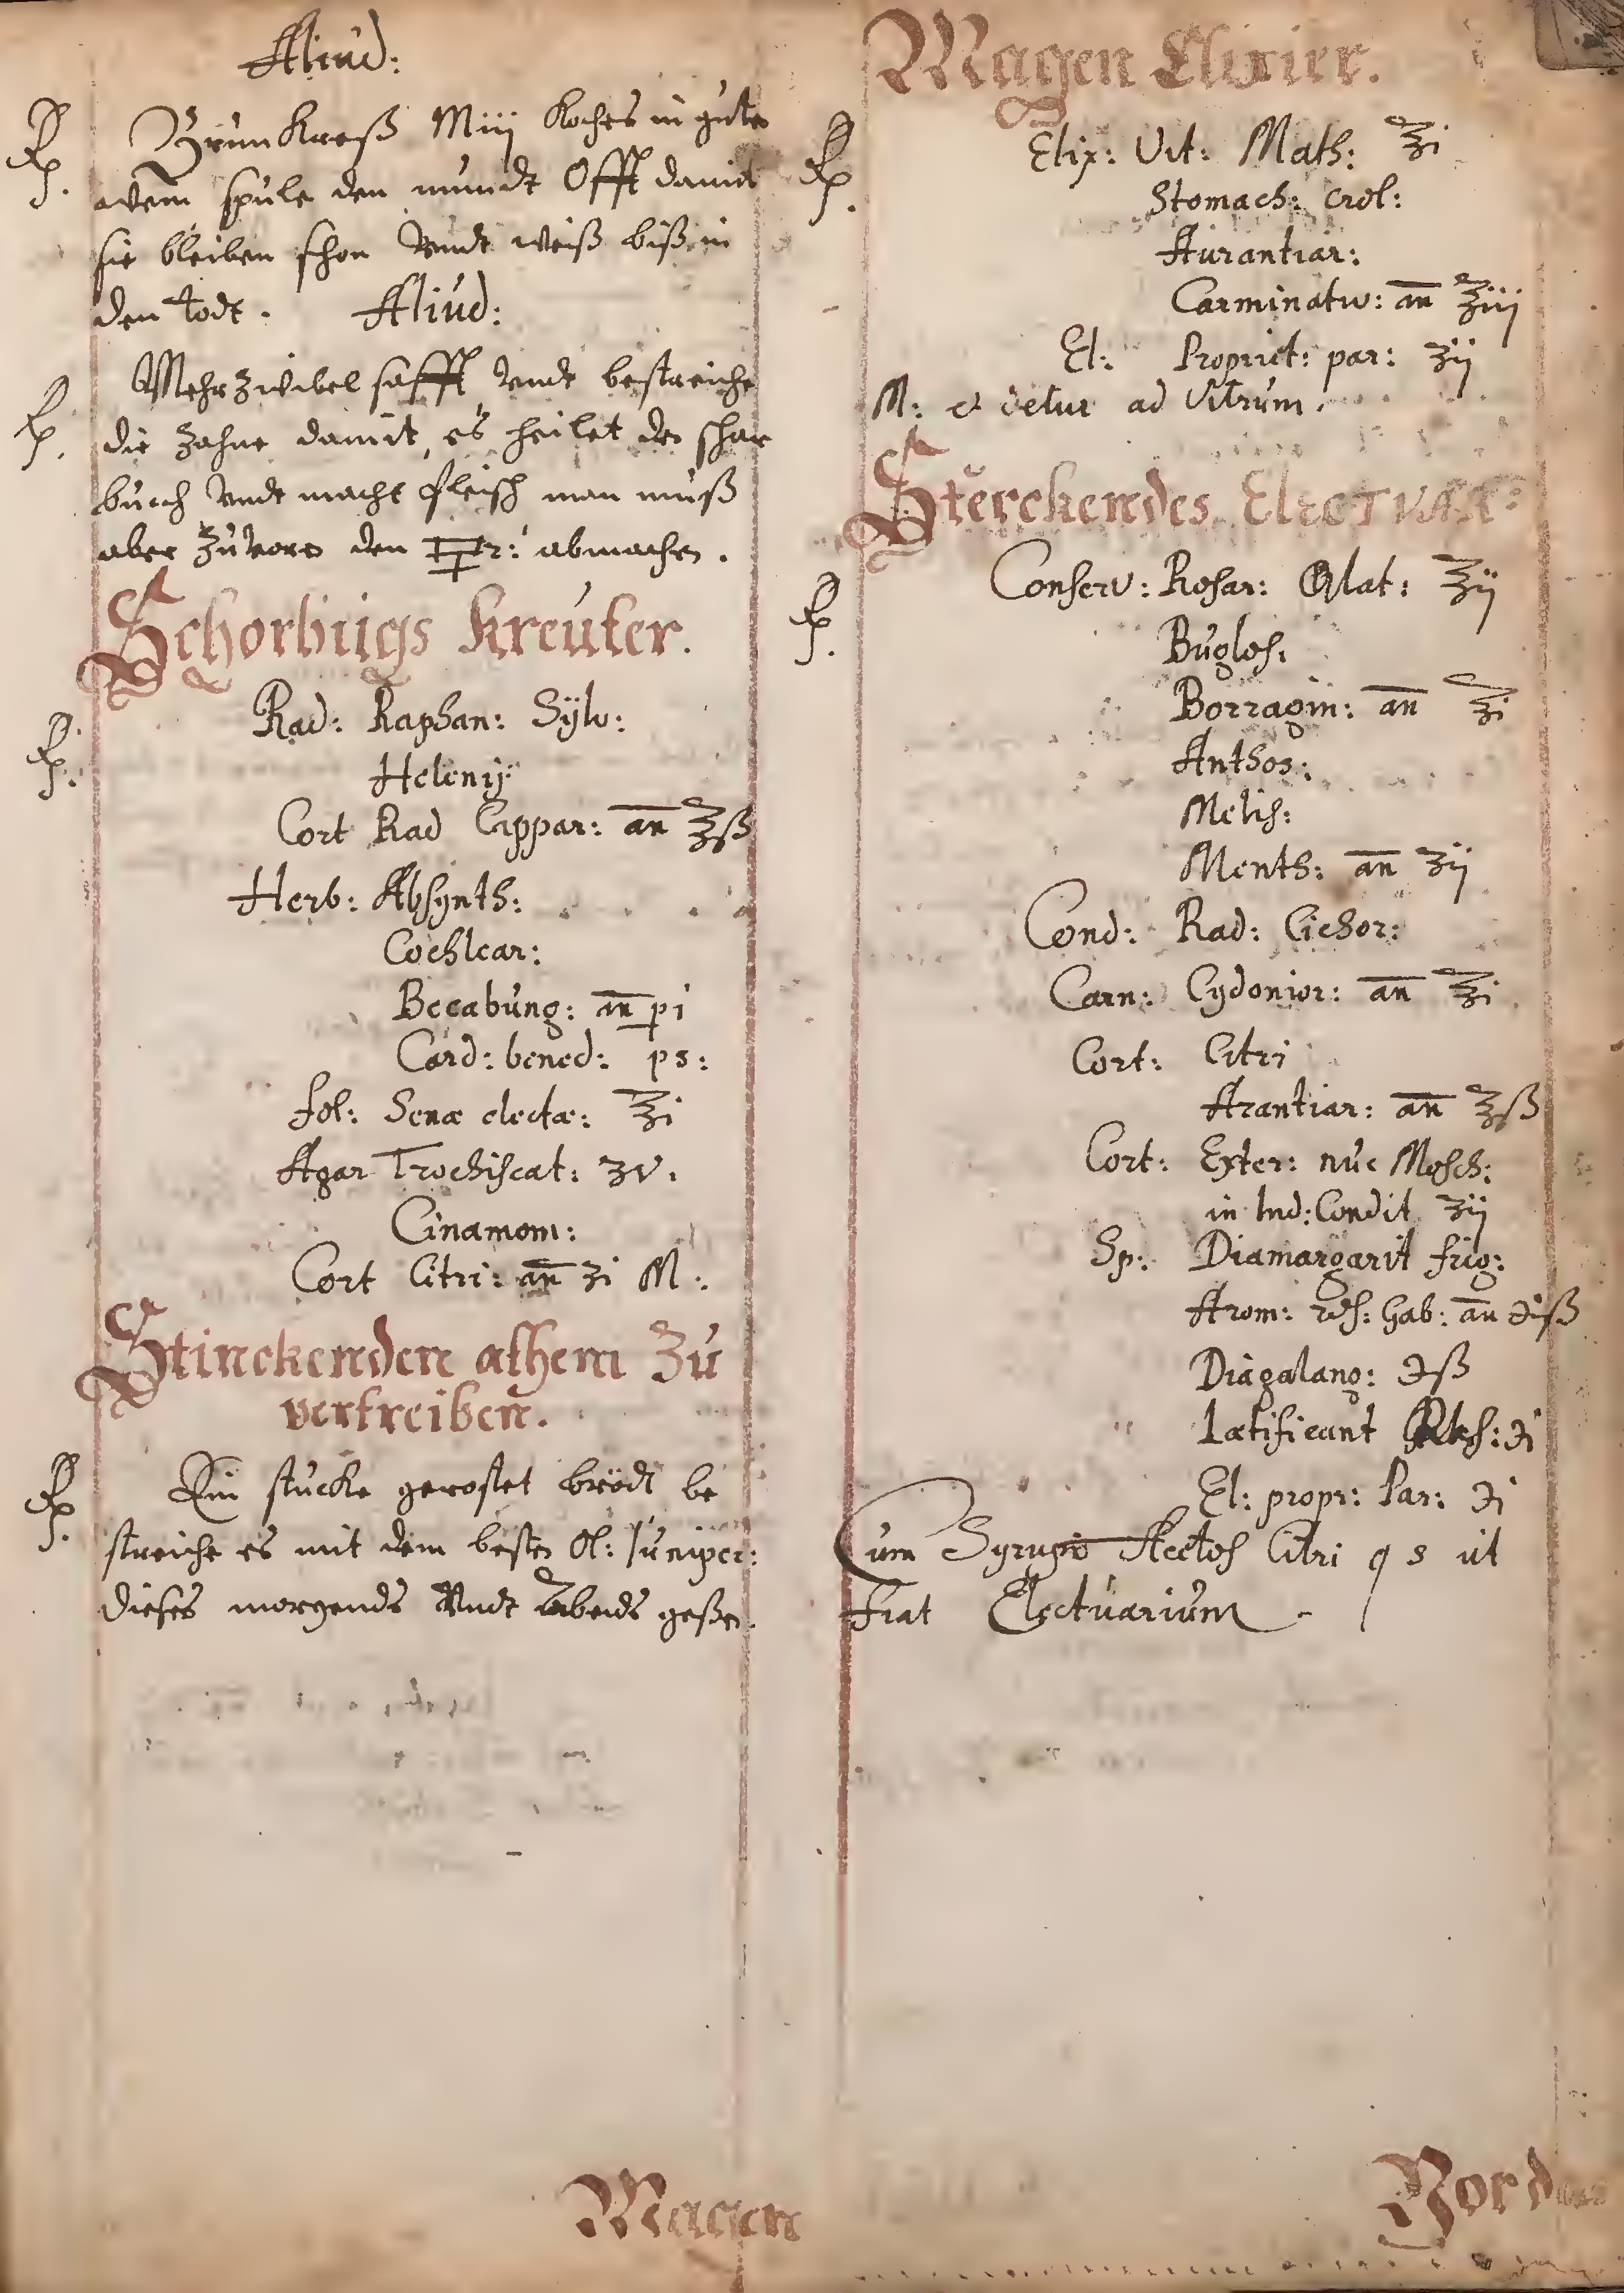 Aliud:
℞. Brun Kreß M iij Koches in guten
wein spule den mundt Offt damit
sie bleiben schon vndt weiß biß in
den todt. Aliud:
℞. Mehrzwibel safft vndt bestreiche
die zähne damit, es heilet den schar
buch vndt macht fleisch man muß
aber zuvorn den abmachen.
Schorbugs Kreuter.
℞. Rad: Raphan: Sÿlv:
Helenij
Cort Rad Cappar: an ℥ß
Herb: Absynth:
Cochlear:
Becabung: an pi
Card: bened: ps:
fol: Senæ electæ: ℥i
Agar Trochiscat: ʒv.
Cinamom:
Cort Citri: an ʒi M:
Stinckenden athem Zu
vertreiben.
℞. Ein stucke gerostet brodt be
streiche es mit dem besten Ol: Juniper:
dieses morgends Vndt abends geßen.
Magen
Magen Elixier.
℞. Elix: Vit: Math: ℥i
Stomach: crol:
Aurantiar:
Carminativ: an ℥iij
El: Propriet: par: ʒij
M: et detur ad Vitrum.
Sterckendes Electuar:
℞. Conserv: Rosar: ℥ij
Buglos:
Borragin: an ℥i
Anthos:
Melis:
Menth: an ʒij
Cond: Rad: Cichor:
Carn: Cydonior: an ℥i
Cort: Citri
Arantiar: an ℥ß
Cort: Exter: nuc Mosch:
in Ind: Condit ʒij
Sp: Diamargarit frig:
Arom: ros: Gab: an ℈iß
Diagalang: ℈ß
Lætificant ℈i
El: propr: Par: ℈i
Cum Syrupo Acetos Citri q s ut
fiat Electuarium
Vor das